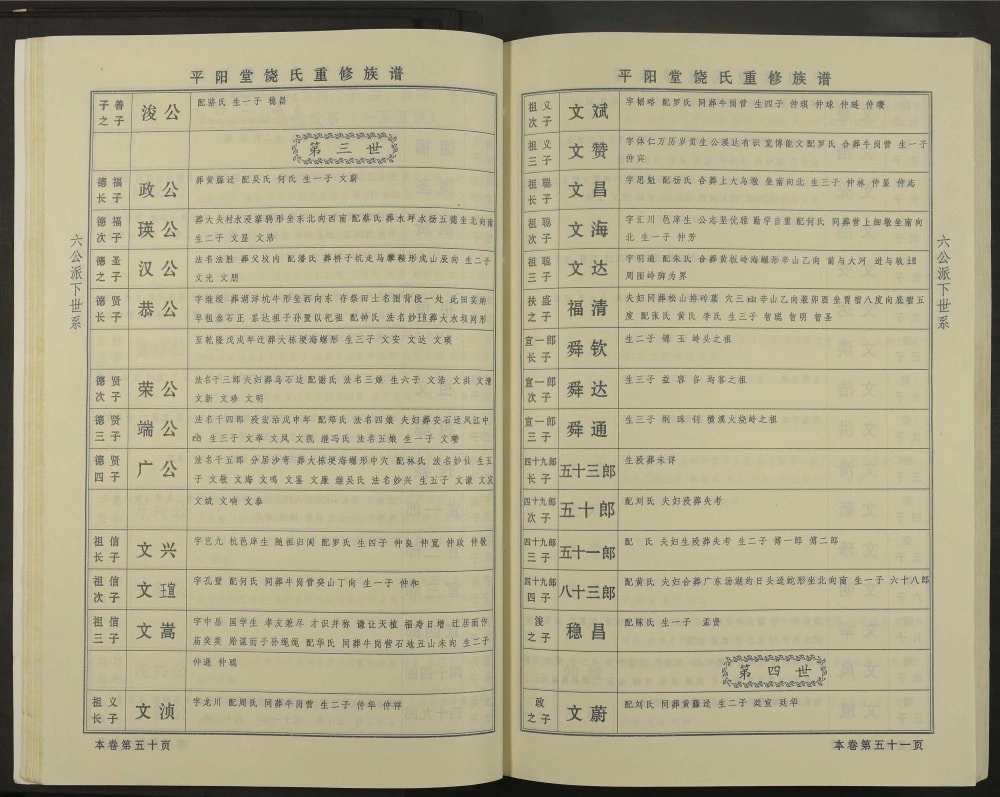 平阳堂饶氏重修族谱
六公派下世系
子善之子 浚公 配骆氏 生一子 稳昌
第三世
德福长子 政公 葬黄藤迳 配吴氏 何氏 生一子 文蔚
德福次子 瑛公 葬大夫村水浸寨骑形坐东北向西南 配蔡氏 葬水坪水杨五德坐北向南
生二子 文昱 文浩
德圣之子 汉公 法名法胜 葬父坟内 配潘氏 葬桥子杭走马攀鞍形戌山辰向 生二子
文光 文朋
德贤长子 恭公 字继绶 葬湖浮杭牛形坐西向东 存祭田土名图背段一处 此田实纳
早租叁石正 系达祖子孙置以祀祖 配钟氏 法名妙 葬大水坝同形
至乾隆戊戌年迁葬大栋埂海螺形 生三子 文安 文达 文瑛
德贤次子 荣公 法名千三郎 夫妇葬乌石迳 配谢氏 法名三娘 生六子 文浩 文洪 文清
文新 文珍 文明
德贤三子 端公 法名千四郎 殁宏治戊申年 配邓氏 法名四娘 夫妇葬安石迳凤江中
生三子 文举 文凤 文凯 继冯氏 法名五娘 生一子 文瓒
德贤四子 广公 法名千五郎 分居沙寄 葬大栋埂海螺形中穴 配林氏 法名妙仙 生五
子 文敬 文海 文鸣 文鉴 文康 继吴氏 法名妙兴 生五子 文谦
文斌 文响 文泰
祖信长子 文兴 字岂九 杭邑庠生 随祖归闽 配罗氏 生四子 仲良 仲宽 仲政 仲敬
祖信次子 文瑄 字孔璧 配何氏 同葬牛岗营癸山丁向 生一子 仲和
祖信三子 文嵩 字中岳 国学生 孝友兼尽 才识并称 谦让天植 福寿日增 迁居面作
庙奕奕 贻谋而子孙绳绳 配华氏 同葬牛岗营石地丑山未向 生二子
仲通 仲聪
祖义长子 文浈 字龙川 配周氏 同葬牛岗营 生二子 仲华 仲祥
本卷第五十页
平阳堂饶氏重修族谱
六公派下世系
祖义次子 文斌 字韬略 配罗氏 同葬牛岗营 生四子 仲琪 仲球 仲琏 仲瓒
祖义三子 文赞 字体仁万历岁贡生公渶达有识宽博能文配罗氏 合葬牛岗营 生一子
仲宾
祖聪长子 文昌 字思魁 配杨氏 合葬上大乌墩 坐南向北 生三子 仲林 仲显 仲志
祖聪次子 文海 字汇川 邑庠生 公志坚优雅 勤学自重 配何氏 同葬营上细墩坐南向
北 生一子 仲芳
祖聪三子 文达 字明通 配朱氏 合葬黄板岭海螺形辛山乙向 前与大河
周围岭脚为界
扶盛之子 福清 夫妇同葬松山排砖墓 穴三 辛山乙向兼卯酉 坐胃宿八度向底宿五
度 配张氏 黄氏 李氏 生三子 智聪 智明 智圣
宣一郎长子 舜钦 生二子 锦 玉 岭头之祖
宣一郎次子 舜达 生三子 益 容 谷 均客之祖
宣一郎三子 舜通 生三子 纲 珠 钊 横溪火烧岭之祖
四十九郎长子 五十三郎 生殁葬未详
四十九郎次子 五十郎 配刘氏 夫妇殁葬失考
四十九郎三子 五十一郎 配 氏 夫妇生殁葬失考 生二子 傅一郎 傅二郎
四十九郎四子 八十三郎 配黄氏 夫妇合葬广东汤湖约日头迳蛇形坐北向南 生一子 六十八郎
浚之子 稳昌 配陈氏 生一子 孟贤
第四世
政之子 文蔚 配刘氏 同葬黄藤迳 生二子 廷宣 廷华
本卷第五十一页